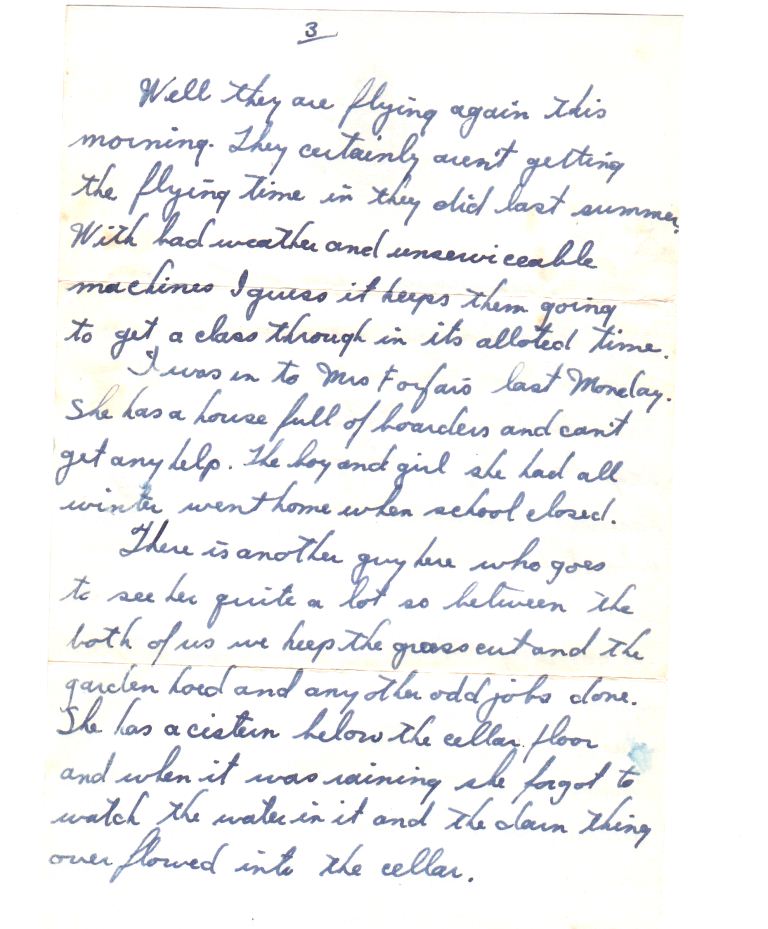 3
Well they are flying again this
morning. They certainly aren't getting
the flying time in they did last summer.
With bad weather and unserviceable
machines I guess it keeps them going
to get a class through in its alloted time.
I was in to Mrs last Monday.
She has a house full of boarders and can't
get any help. The boy and girl she had all
winter went home when school closed.
There is another guy here who goes
to see her quite a lot so between the
both of us we keep the grass cut and the
garden hoed and any other odd jobs done.
She has a cistern below the cellar floor
and when it was raining she forgot to
watch the water in it and the darn thing
over flowed into the cellar.